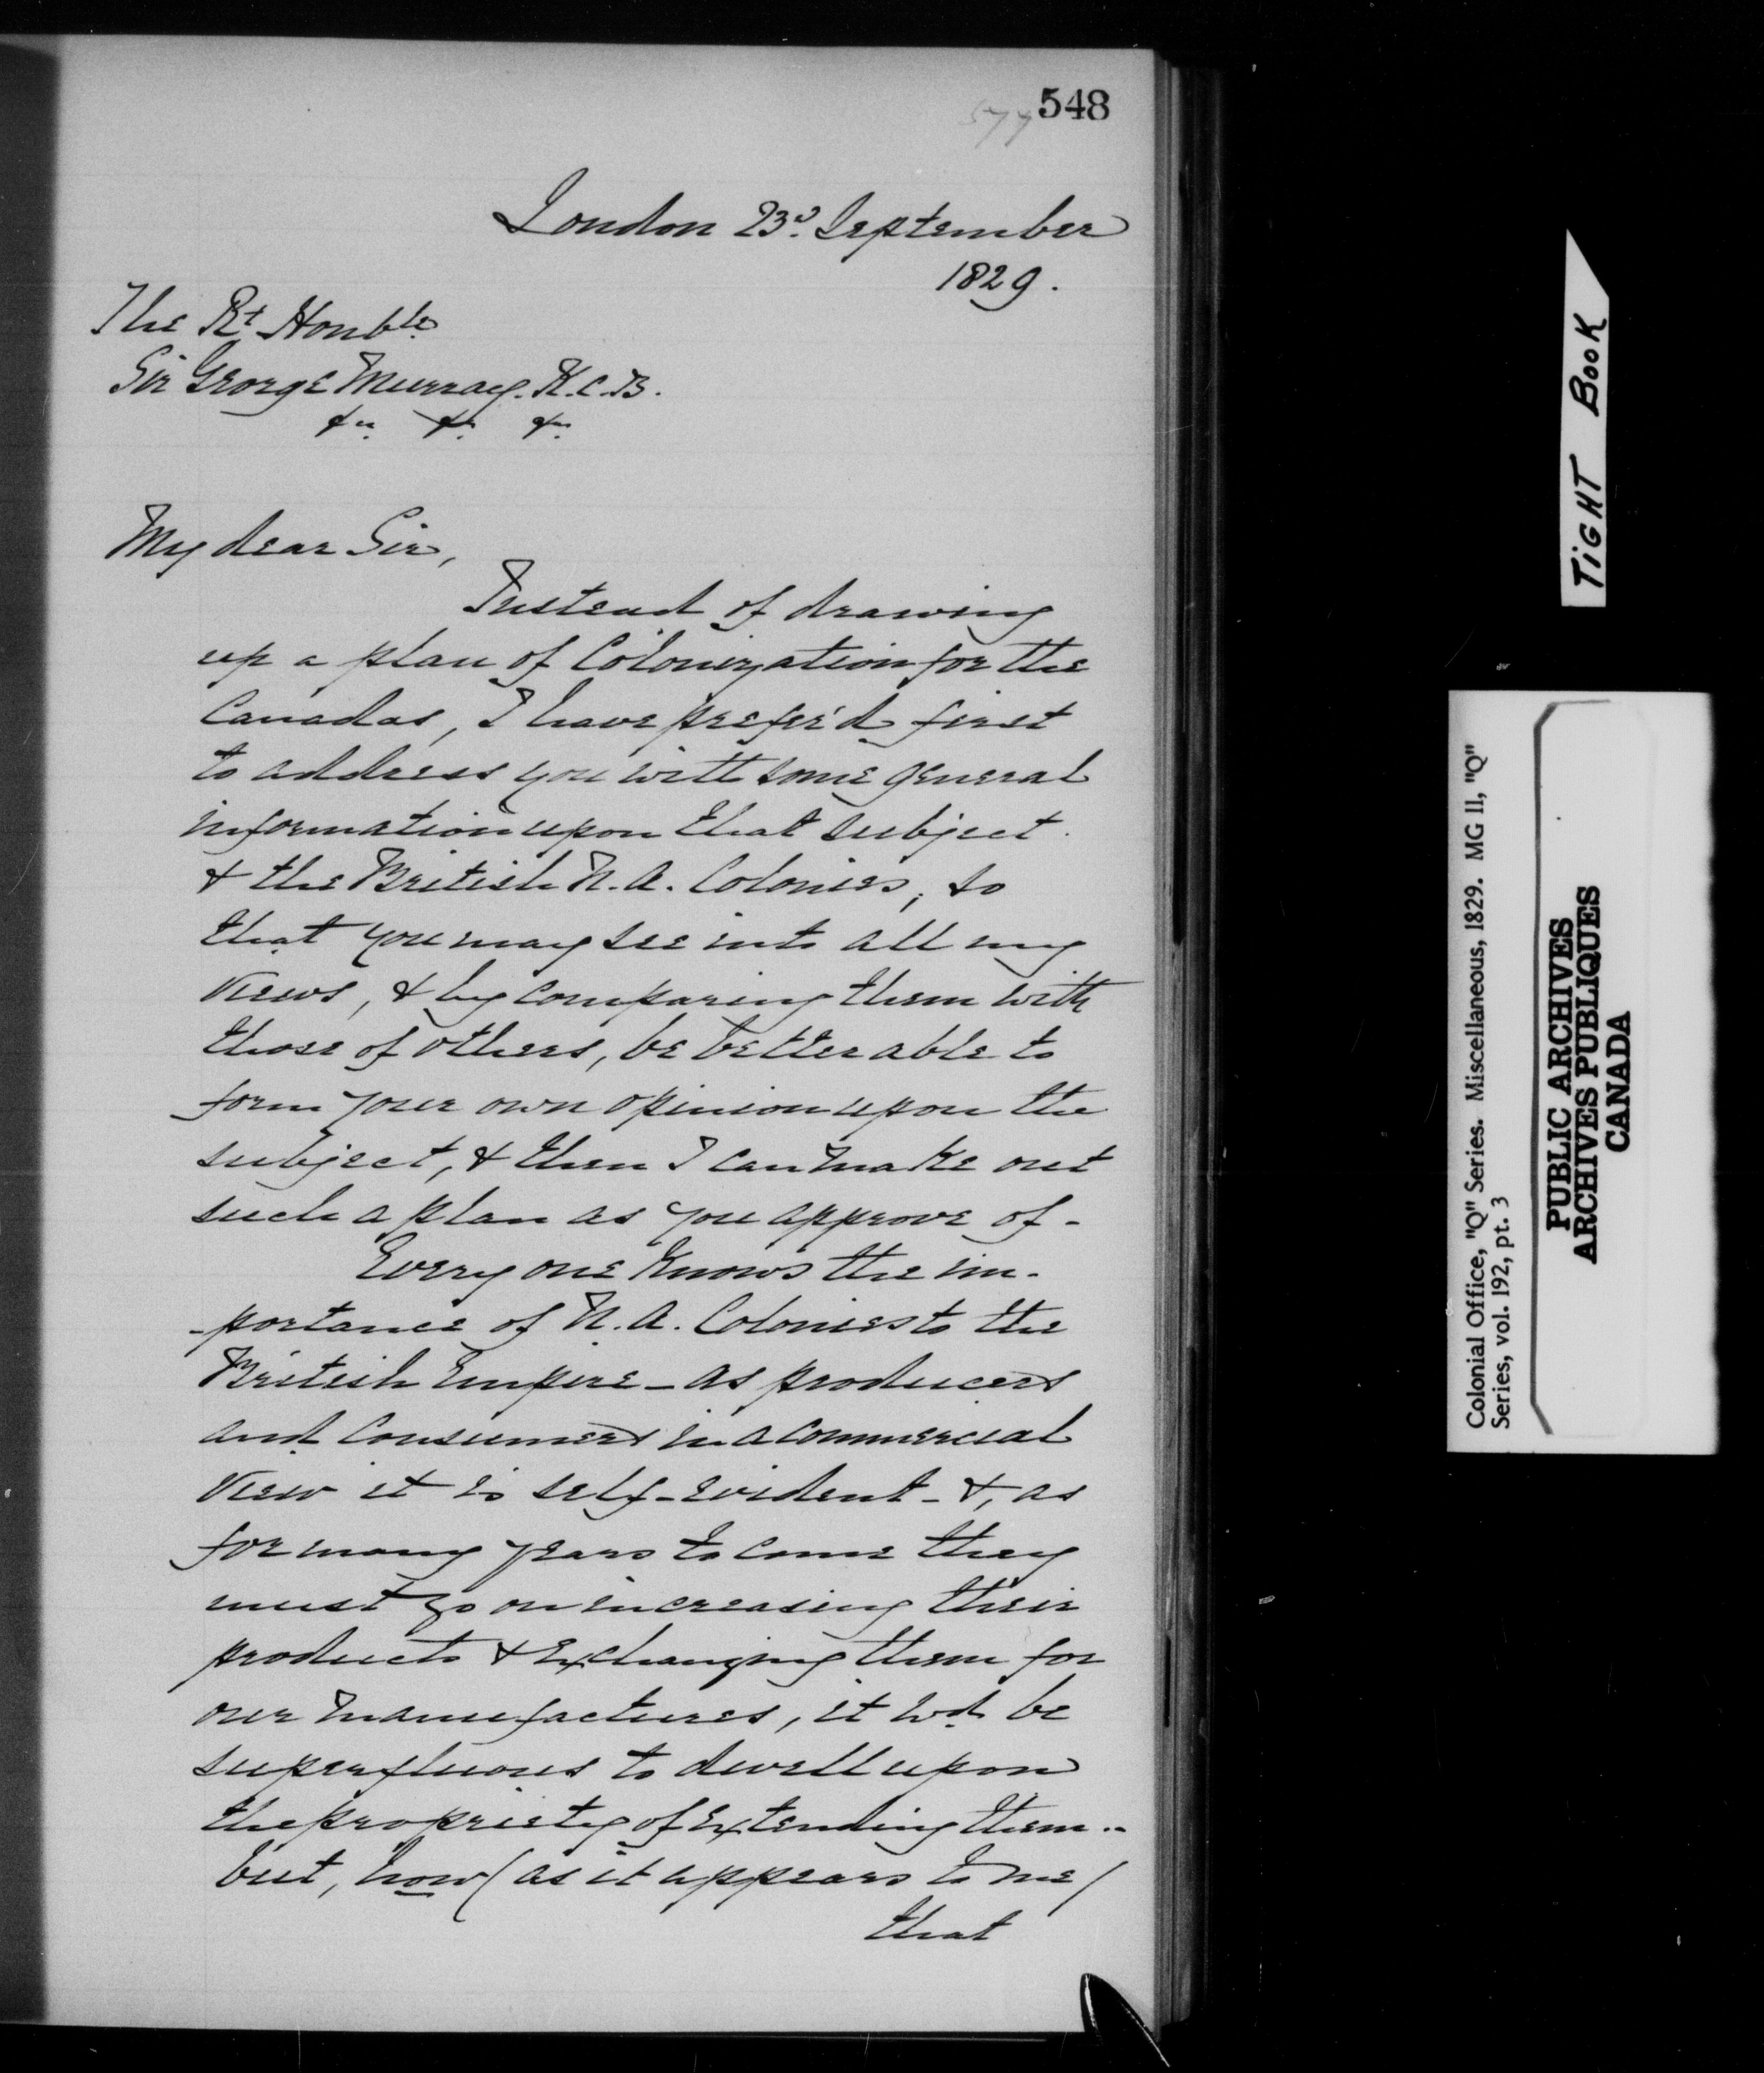 548
577
London 23d. September
1829.
The Rt Honble.
Sir George Murray. K.C.B.
&c. &c. &c.
My dear Sir,
Instead of drawing
up a plan of Colonization for the
Canadas, I have prefer'd first
to address you with some general
information upon that subject
& the British N.A. Colonies, so
that you may see into all my
views, & by comparing them with
those of others, be better able to
form your own opinion upon the
subject, & then I can make out
such a plan as you approve of -
Every one knows the im-
-portance of N.A. Colonies to the
British Empire - as producers
and consumers in a commercial
view it is self-evident - &, as
for many years to come they
must go on increasing their
products & exchanging them for
our manufactures, it wd. be
superfluous to dwell upon
the propriety of extending them..
but, now (as it appears to me)
that
TIGHT BOOK
Colonial Office, "Q" Series. Miscellaneous, 1829. MG 11, "Q"
Series, vol. 192, pt. 3
PUBLIC ARCHIVES
ARCHIVES PUBLIQUES
CANADA